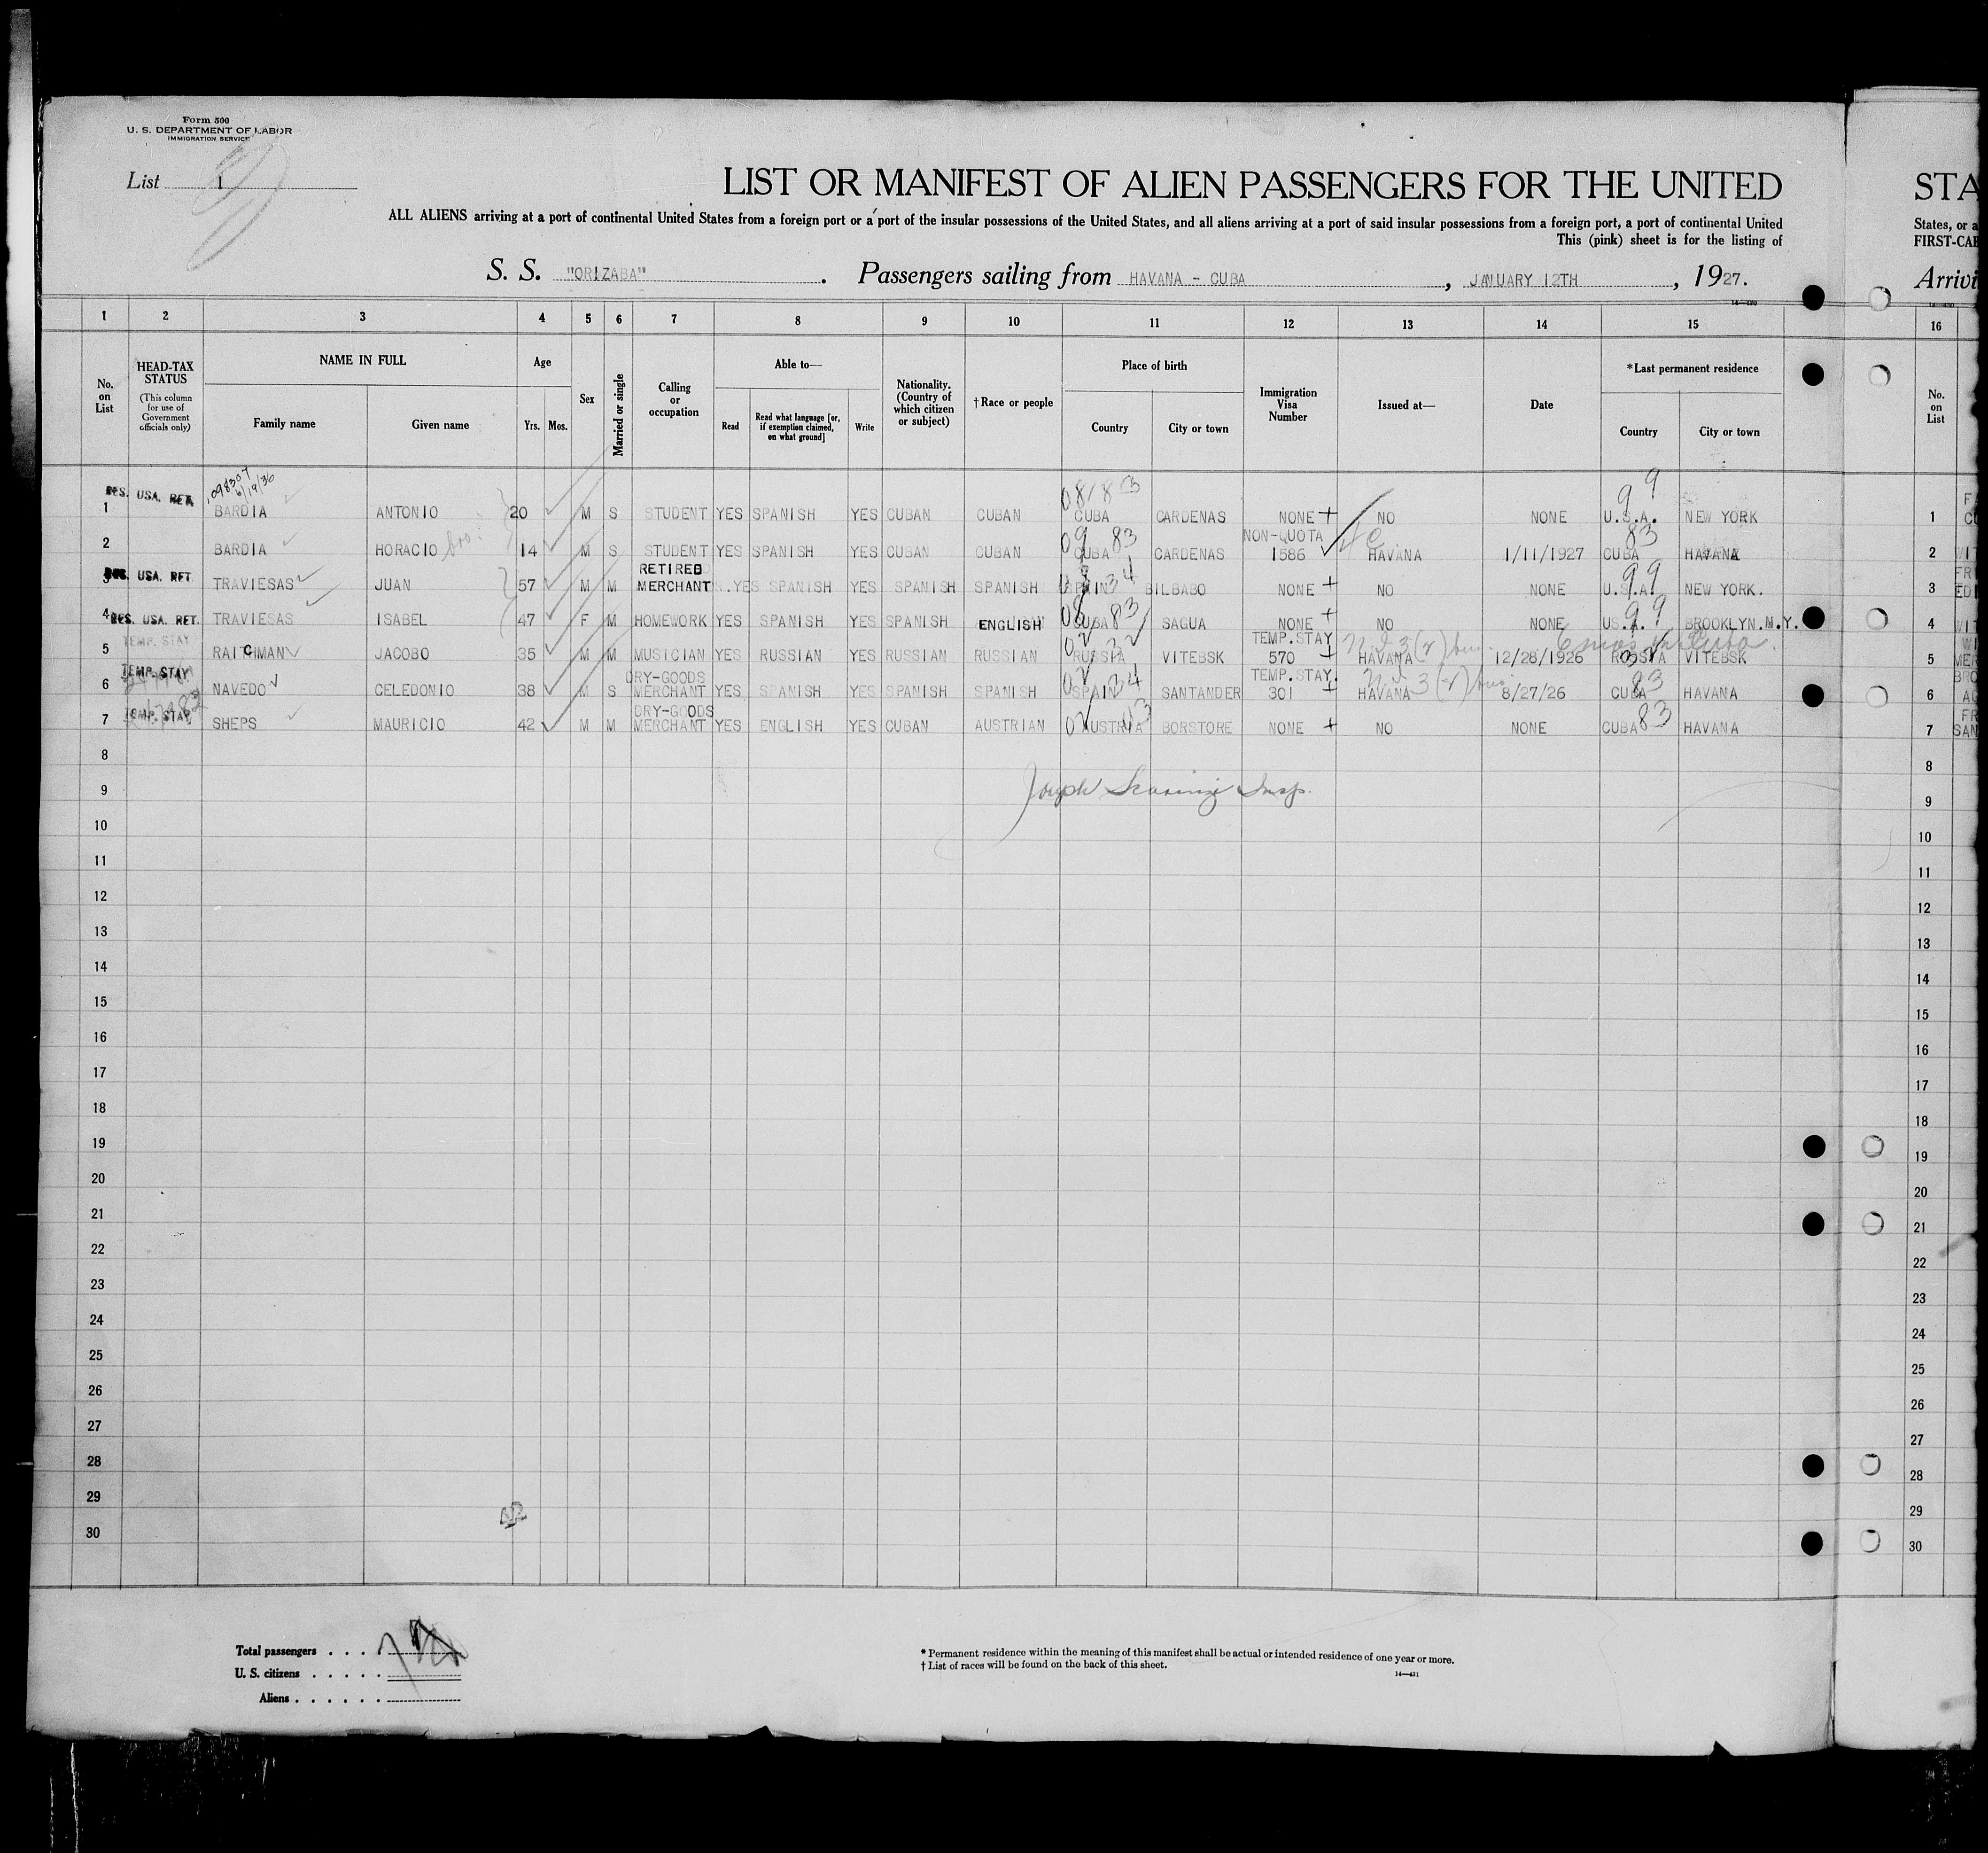 Form 500
U. S. DEPARTMENT OF LABOR
IMMIGRATION SERVICE
List 1
LIST OR MANIFEST OF ALIEN PASSENGERS FOR THE UNITED
STA
ALL ALIENS arriving at a port of continental United States from a foreign port or a port of the insular possessions of the United States, and all aliens arriving at a port of said insular possessions from a foreign port, a port of continental United
States, or a
This (pink) sheet is for the listing of
FIRST-CAB
S. S. "ORIZABA". Passengers sailing from HAVANA - CUBA, JANUARY 12TH, 1927.
Arrivi
1 2 3 4 5 6 7 8 9 10 11 12 13 14 15 16
No. on List
HEAD-TAX STATUS (This column for use of Government officials only)
NAME IN FULL
Family name Given name
Age
Yrs. Mos.
Sex
Married or single
Calling or occupation
Able to—
Read Read what language [or, if exemption claimed, on what ground] Write
Nationality. (Country of which citizen or subject)
†Race or people
Place of birth
Country City or town
Immigration Visa Number
Issued at—
Date
*Last permanent residence
Country City or town
No. on List
098307 6/19/36
1 RES. USA. RET. BARDIA ANTONIO 20 M S STUDENT YES SPANISH YES CUBAN CUBAN CUBA CARDENAS NONE + NO NONE U.S.A. NEW YORK 1
2 BARDIA HORACIO bro. 14 M S STUDENT YES SPANISH YES CUBAN CUBAN CUBA CARDENAS NON-QUOTA 1586 HAVANA 1/11/1927 CUBA HAVANA 2
3 RES. USA. RET. TRAVIESAS JUAN 57 M M RETIRED MERCHANT YES SPANISH YES SPANISH SPANISH SPAIN BILBABO NONE + NO NONE U.S.A. NEW YORK. 3
4 RES. USA. RET. TRAVIESAS ISABEL 47 F M HOMEWORK YES SPANISH YES SPANISH ENGLISH CUBA SAGUA NONE + NO NONE US.A. BROOKLYN.N.Y. 4
5 TEMP. STAY RAITCHMAN JACOBO 35 M M MUSICIAN YES RUSSIAN YES RUSSIAN RUSSIAN RUSSIA VITEBSK TEMP.STAY 570 + HAVANA 12/28/1926 RUSSIA VITEBSK 5
6 TEMP. STAY NAVEDO CELEDONIO 38 M S DRY-GOODS MERCHANT YES SPANISH YES SPANISH SPANISH SPAIN SANTANDER TEMP.STAY. 301 + HAVANA 8/27/26 CUBA HAVANA 6
7 TEMP. STAY SHEPS MAURICIO 42 M M DRY-GOODS MERCHANT YES ENGLISH YES CUBAN AUSTRIAN AUSTRIA BORSTORE NONE + NO NONE CUBA HAVANA 7
8 8
9 Insp. 9
10 10
11 11
12 12
13 13
14 14
15 15
16 16
17 17
18 18
19 19
20 20
21 21
22 22
23 23
24 24
25 25
26 26
27 27
28 28
29 29
30 30
Total passengers . . . .
U. S. citizens . . . . .
Aliens . . . . . .
* Permanent residence within the meaning of this manifest shall be actual or intended residence of one year or more.
† List of races will be found on the back of this sheet.
14—431